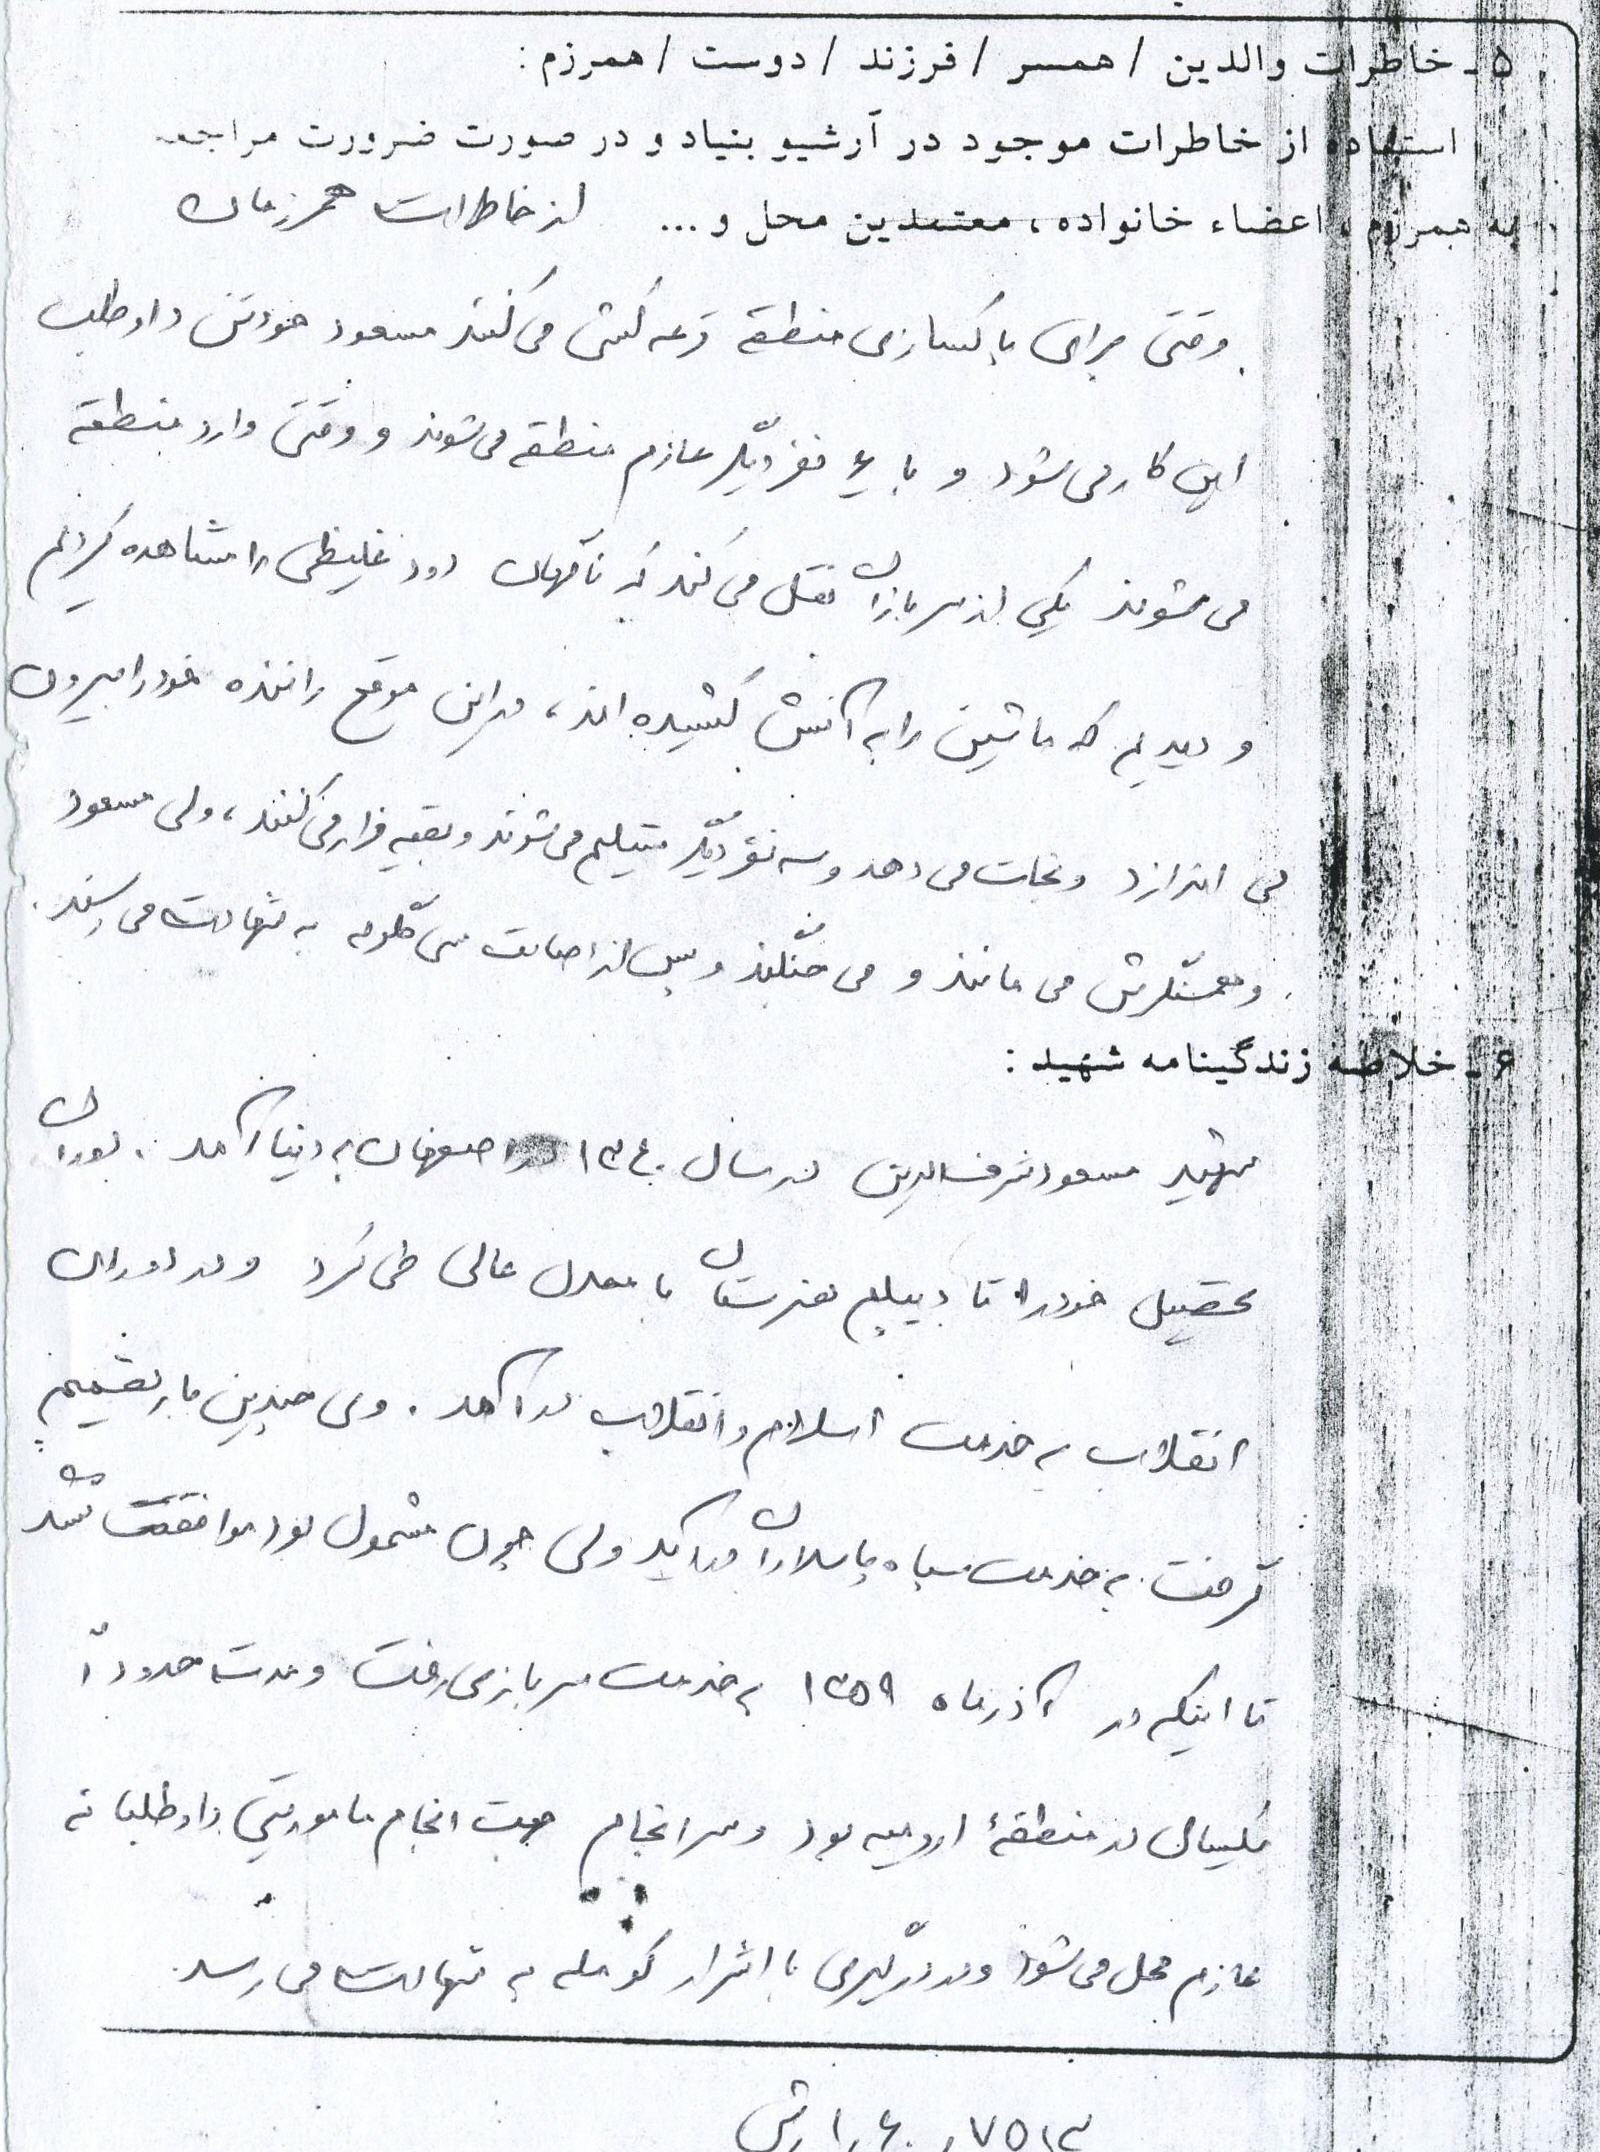 ۵ـ خاطرات والدین / همسر / فرزند / دوست / همرزم :
استفاده از خاطرات موجود در آرشیو بنیاد و در صورت ضرورت مراجعه
به همرزم ، اعضاء خانواده ، معتمدین محل و ... از خاطرات همرزمان
وقتی برای پاکسازی منطقه قرعه کشی می کنند مسعود خودش داوطلب
این کار می شود و با ۶ نفر دیگر عازم منطقه می شوند و وقتی وارد منطقه
می شوند یکی از سربازان نقل می کند که ناگهان دود غلیظی را مشاهده کردیم
و دیدیم که ماشین را به آتش کشیده اند ، در این موقع راننده خود را بیرون
می اندازد و نجات می دهد و سه نفر دیگر تسلیم می شوند و بقیه فرار می کنند ، ولی مسعود
و همسنگرش می مانند و می جنگند و پس از اصابت سی گلوله به شهادت می رسند .
۶ـ خلاصه زندگینامه شهید :
شهید مسعود شرف الدین در سال ۱۳۴۰ در اصفهان به دنیا آمد . دوران
تحصیل خود را تا دیپلم هنرستان با معدل عالی طی کرد و در دوران
انقلاب به خدمت اسلام و انقلاب در آمد . وی چندین بار تصمیم
گرفت به خدمت سپاه پاسداران درآید ولی چون مشمول بود موافقت نشد
تا اینکه در آذر ماه ۱۳۵۹ به خدمت سربازی رفت و مدت حدوداً
یکسال در منطقهٔ ارومیه بود و سرانجام جهت انجام ماموریتی داوطلبانه
عازم محل می شود و در درگیری با اشرار کومله به شهادت می رسد .